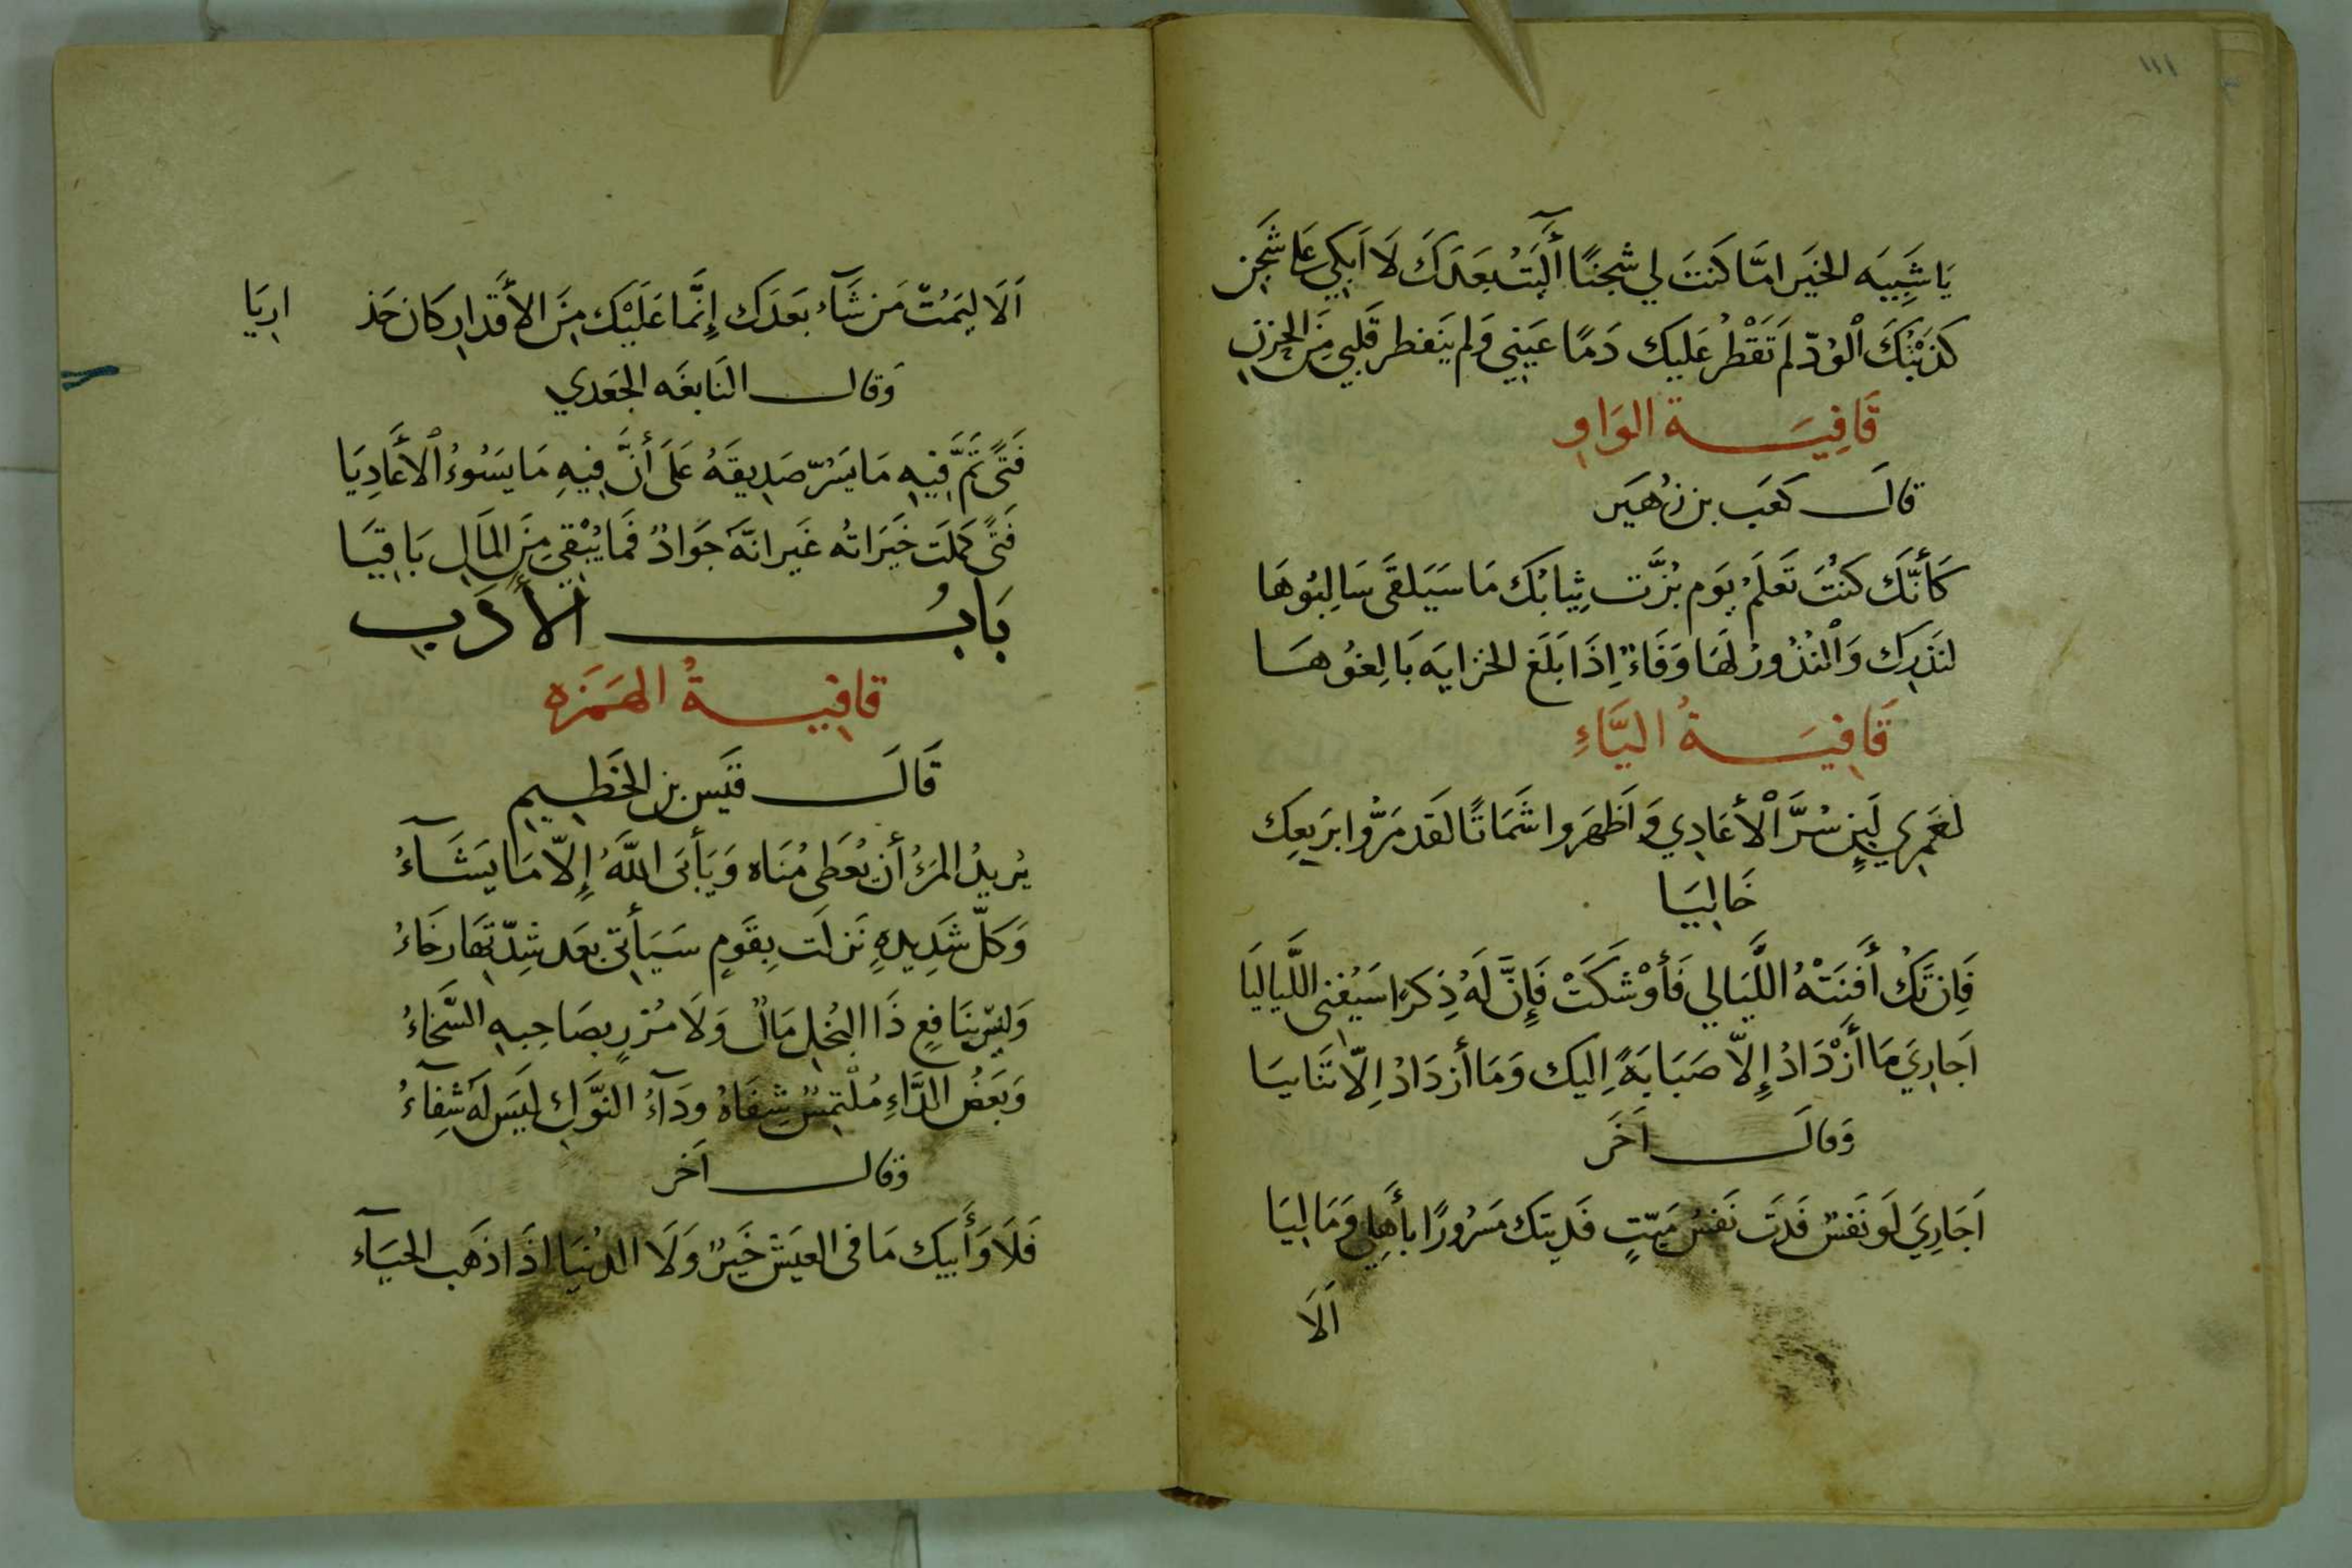 ١١١
يَا شَبِيَه الخيَر امَّا كَنتَ لي شجنًا أَلَيتُ بعَدَكَ لَا اَبكِي عَلى شَجَن
كَذَبْتُكَ ٱلوُدّ لَم تَقْطُر عَليك دَمًا عَيَني وَلم يَنفطر قَلبي مِنَ الحزنِ
قَافِيَة الوَاوِ
قالَ كعَب بن زهُيَر
كَأنّكَ كنتُ تَعلَمُ يوَم بُزَّت ثِيابُك مَا سَيَلقَى سَالِبُوهَا
لنَذرِك وَٱلنُذُورُ لهَا وَفَاءٌ اِذَا بَلَغ الخزايَه بَالِغوُهَا
قَافِيَةُ اليَّاءِ
لعَمرِي لَئِن سُرَّ ٱلأعَادِي وَاَظهَروا شَمَاتًا لقَد مَرُّوا بِرَبعِك
خَالِيَا
فَاِن تَكُ أَفنَتْهُ اللَّيَالي فَأوْشَكَتْ فَإِنَّ لَهُ ذِكرًا سَيُفنى اللَّياليَا
اَجَارِيَ مَا أَزْدَادُ إِلاّ صَبَابَةً اِليك وَمَا أزدَادُ اِلّا تَنَايَا
وَقالَ اَخَر
اَجَارِيَ لَو نَفسٌ فَدَت نَفسَ مَيّتٍ فَدِيَتك مَسَرُورًا بأهِلي وَمَالِيَا
اَلَا
اَلَا ليَمُتّ مَن شَآءَ بَعَدَك إِنَّما عَلَيْك مِنَ الأقَدارِ كَان حَذ
ارِيَا
وَقال النَابغَه الجَعدي
فَتًى تَمَّ فيِهِ مَا يَسُرّ صَدِيقَهُ عَلَى أَنَّ فِيهِ مَا يَسُوءُ ٱلأَعَادِيَا
فَتًى كَمُلَت خَيَرَاتُه غَير انَّهَ جَوَادٌ فَمَا يُبْقي مِنَ المَالِ بَاقِيَا
بَابُ الأَدَبِ
قافِيةُ الهَمَزَه
قَالَ قيَس بن الخَطِيمِ
يُريدُ المرَءُ أن يُعَطى مُنَاه وَيَأبَى اللّهَ إِلاّ مَا يَشَآءُ
وَكلّ شَدِيدِهٍ نَزلَت بِقَومٍ سَيَأتي بعَد شِدّتهَا رخَاءُ
وَليسَ بنَافِعٍ ذَا البُخلِ مَالٌ وَلَا مُزرٍ بصَاحِبِهِ السَّخاءُ
وَبَعضُ الدَّاءِ مُلْتَمَسٌ شِفَاهُ ودَآءُ النَوَّكِ ليَس لَهَ شِفآءُ
وقال اَخر
فَلَا وَأَبيك مَا فى العيَش خَيَرٌ وَلَا الدُنيَا اذَا ذَهَب الحيَآء